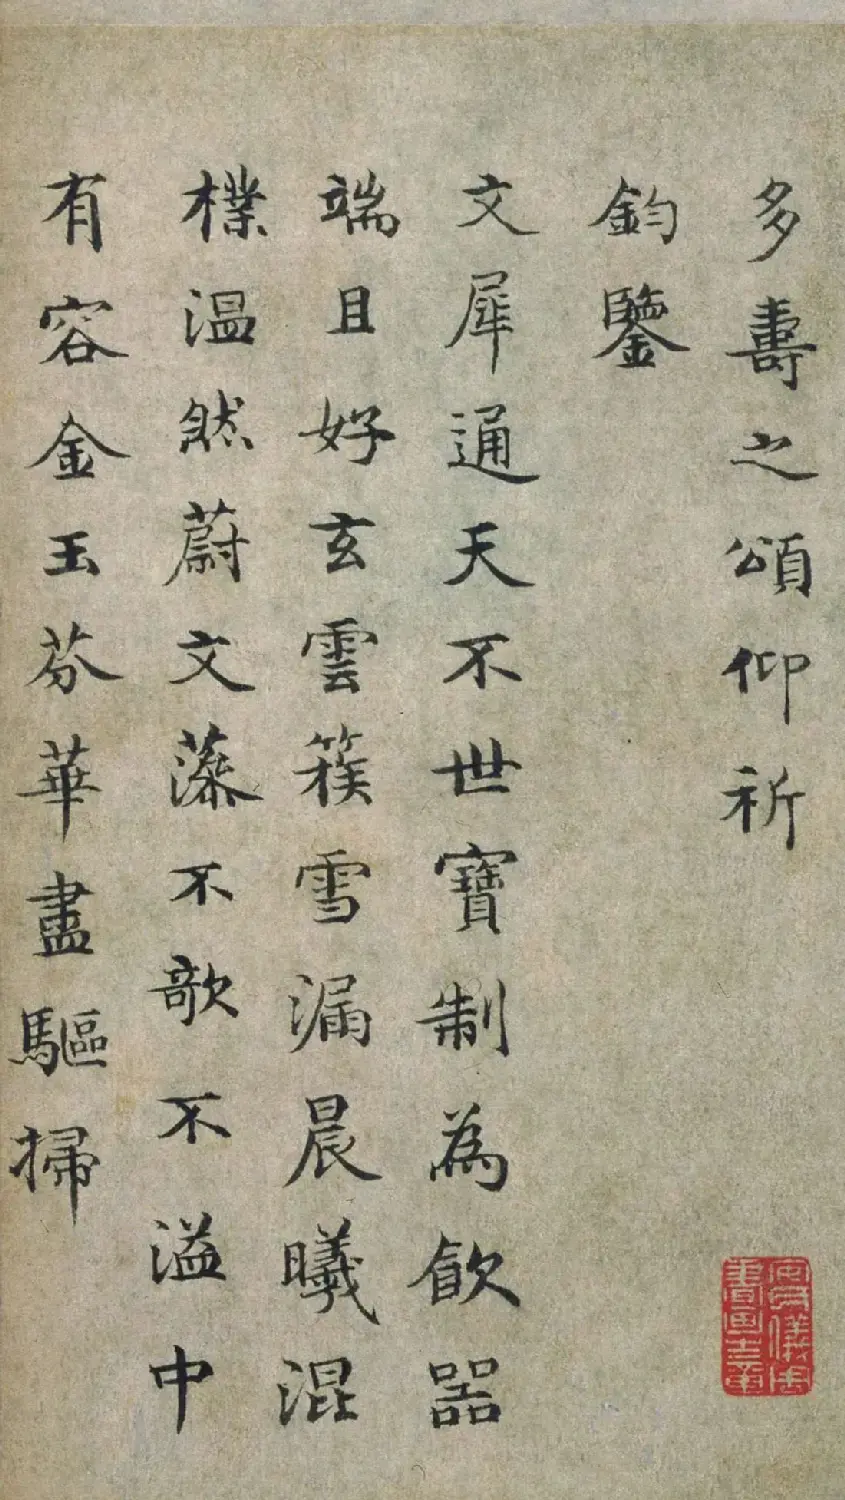 多壽之頌仰祈
鈞鑒
文犀通天不世寶制為飲器
端且好玄雲簇雪漏晨曦混
樸溫然蔚文藻不欹不溢中
有容金玉芬華盡驅掃